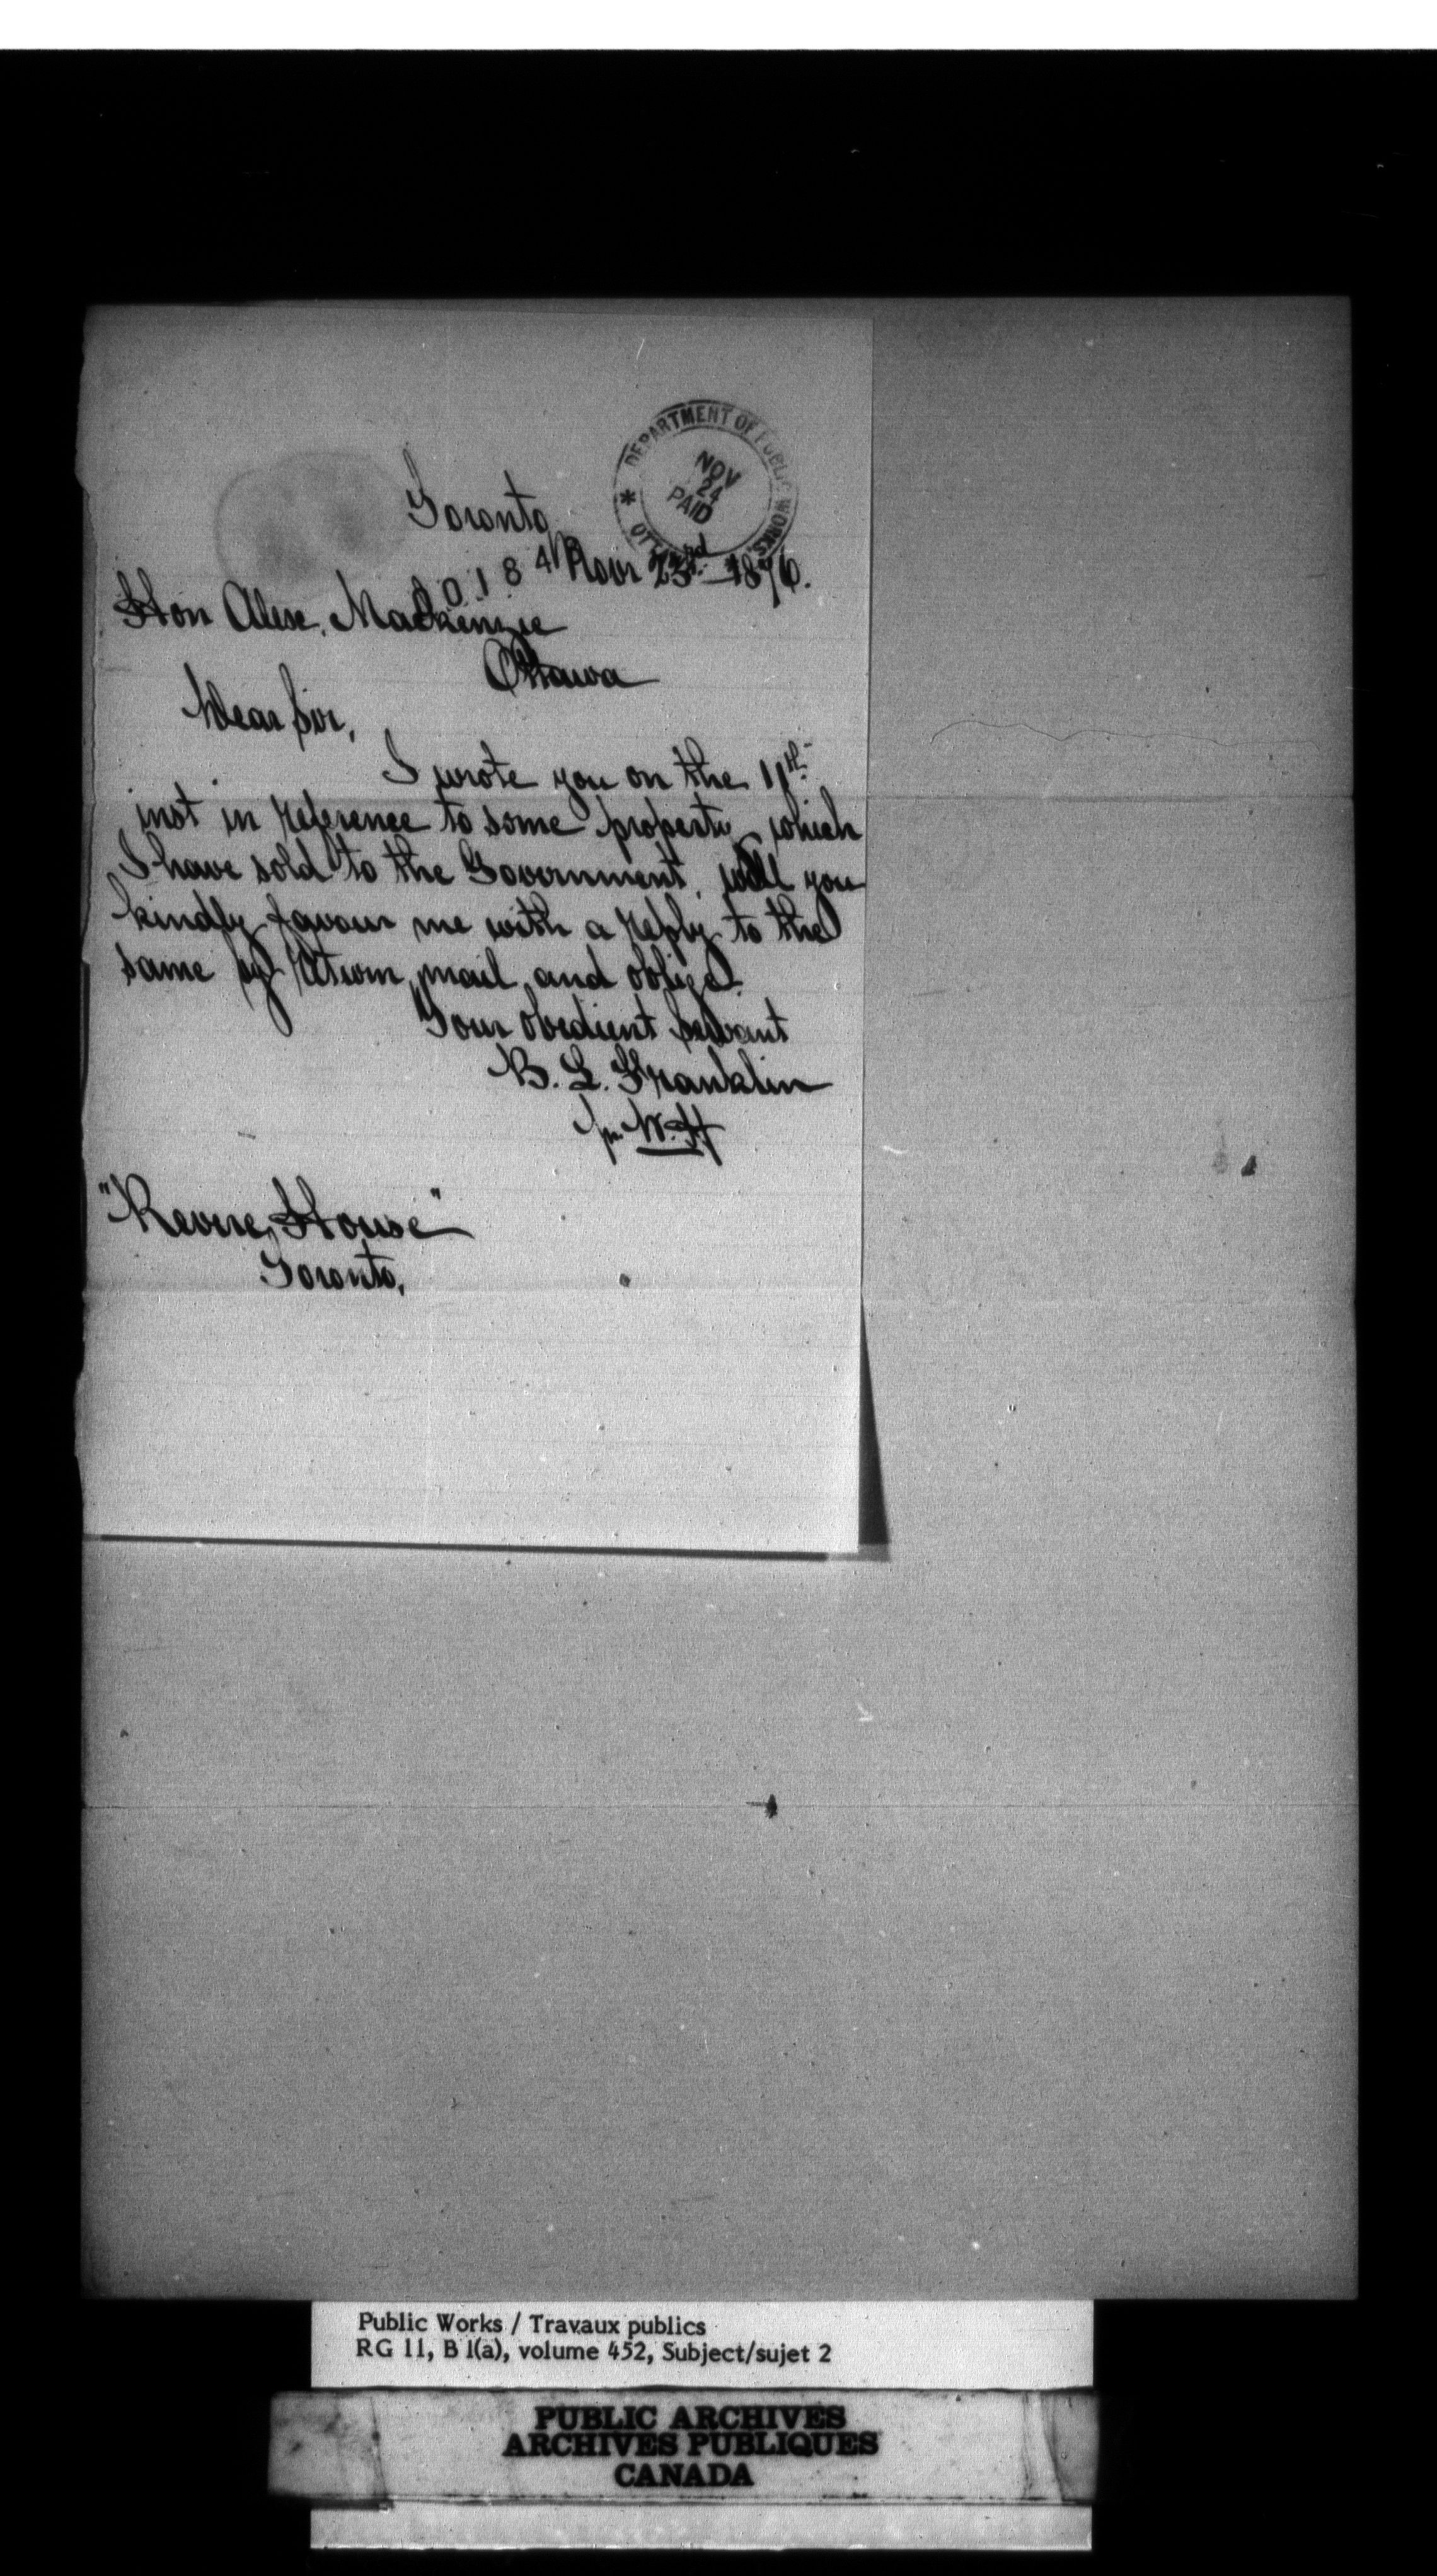 DEPARTMENT OF PUBLIC WORKS.
NOV
24
PAID
Toronto
Novr 23rd 1876.
Hon Alex. Mackenzie
Ottawa
Dear Sir,
I wrote you on the 11th
inst in reference to some property which
I have sold to the Government, will you
kindly favour me with a reply to the
same by return mail, and oblige
Your obedient Servant
B. L. Franklin
per W. H
"Revere House"
Toronto,
Public Works / Travaux publics
RG 11, B 1(a), volume 452, Subject/sujet 2
PUBLIC ARCHIVES
ARCHIVES PUBLIQUES
CANADA